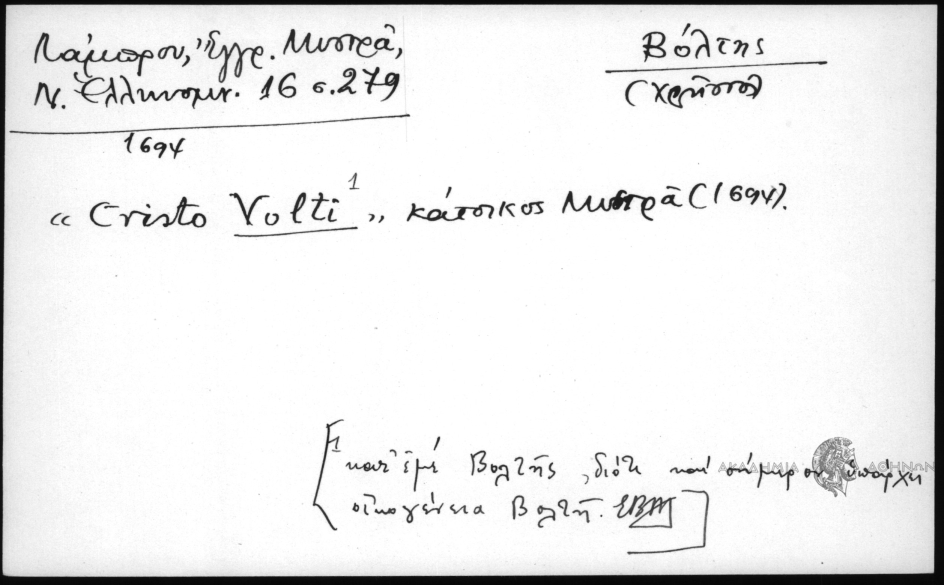 Λάμπρου, Ἔγγρ. Μυστρᾶ,
Ν. Ἑλληνομν. 16 σ. 279
1694
Βόλτης
(Χρῆστος)
« Cristo Volti ¹ » κάτοικος Μυστρᾶ (1694).
1 κατ' ἐμέ Βολτῆς, διότι καί σήμερον ὑπάρχει
οἰκογένεια Βολτῆ.
ΑΚΑΔΗΜΙΑ ΑΘΗΝΩΝ